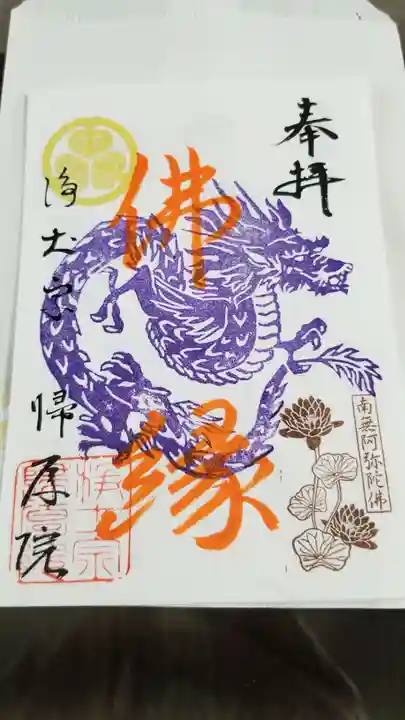 奉拝
佛縁
南無阿弥陀佛
浄土宗 帰原院